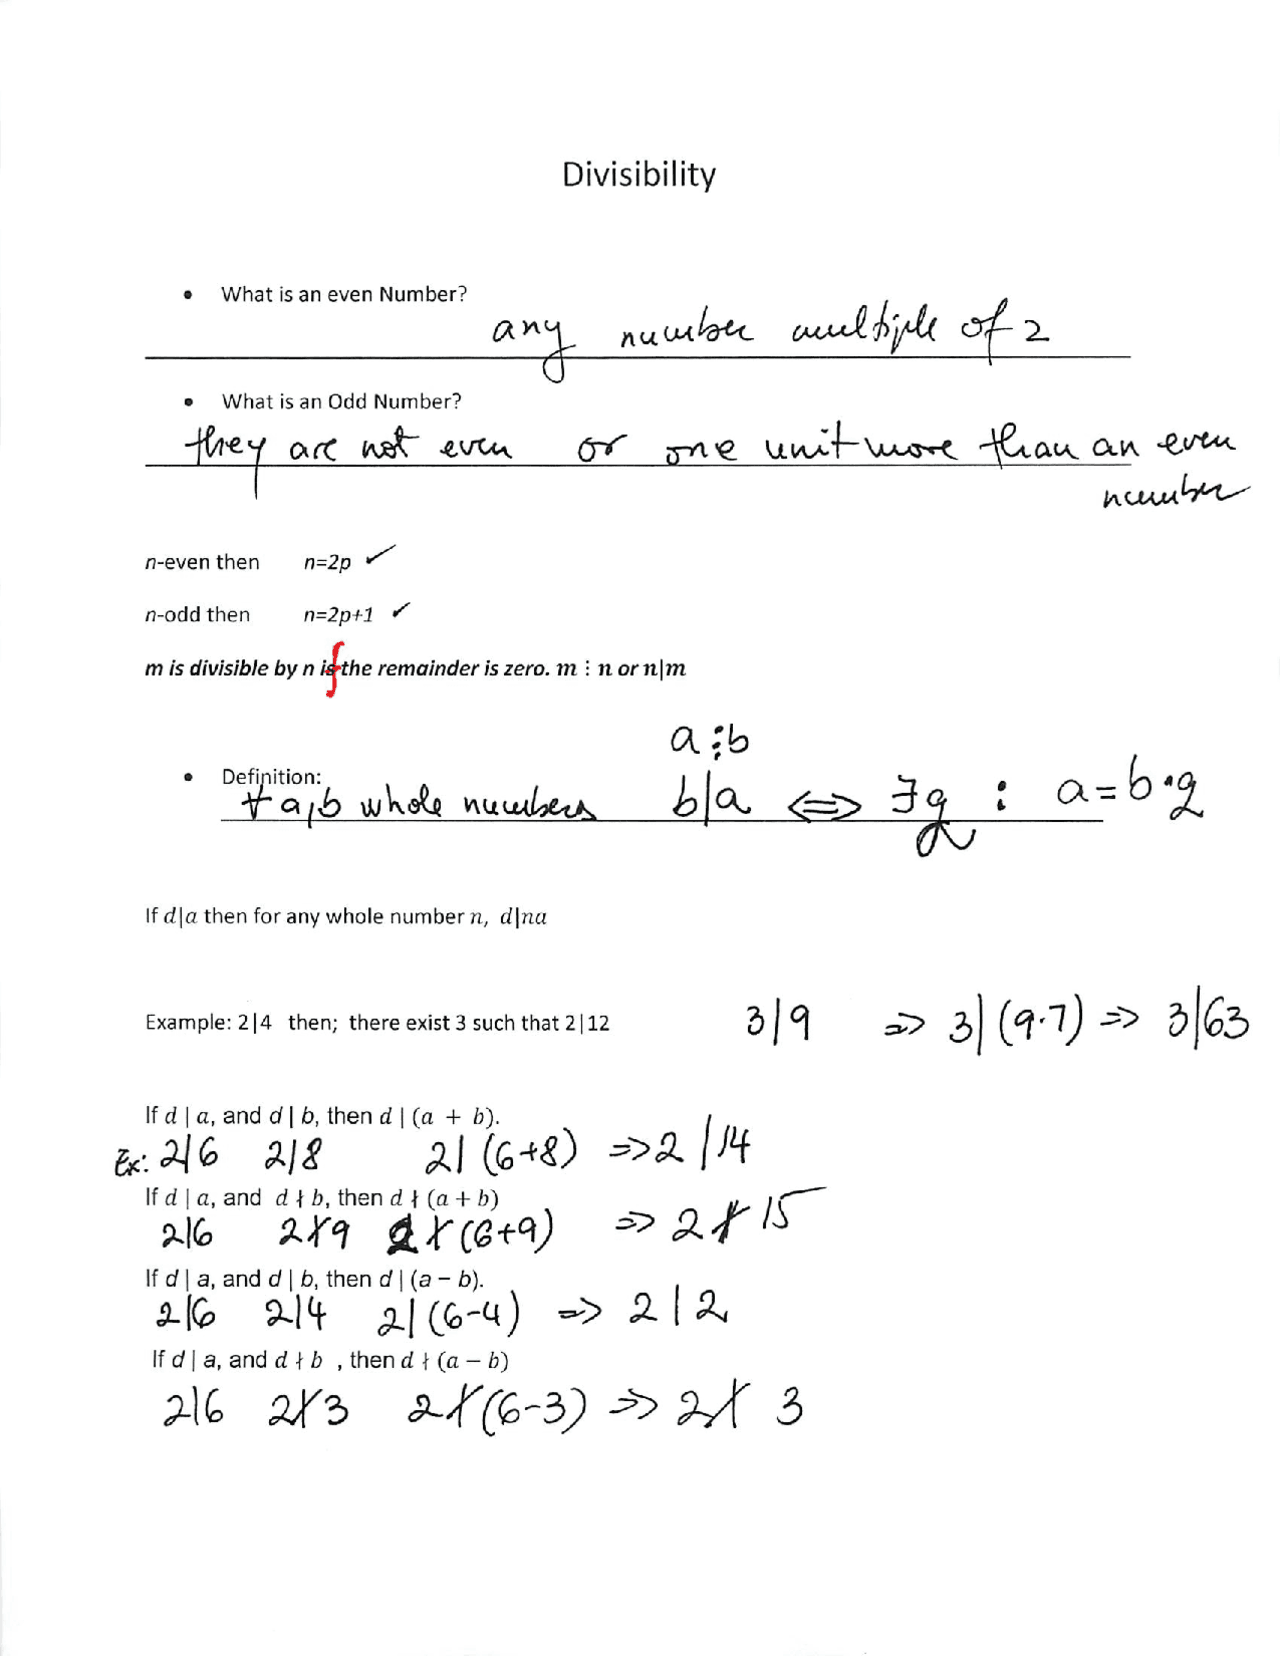 Divisibility
• What is an even Number?
any number multiple of 2
• What is an Odd Number?
they are not even or one unit more than an even
number
n-even then n=2p ✓
n-odd then n=2p+1 ✓
m is divisible by n if the remainder is zero. m ⋮ n or n|m
a ⋮ b
• Definition:
∀ a,b whole numbers b|a ⇔ ∃ q : a = b·q
If d|a then for any whole number n, d|na
Example: 2|4 then; there exist 3 such that 2|12 3|9 ⇒ 3|(9·7) ⇒ 3|63
If d | a, and d | b, then d | (a + b).
Ex: 2|6 2|8 2|(6+8) ⇒ 2|14
If d | a, and d ∤ b, then d ∤ (a + b)
2|6 2∤9 2∤(6+9) ⇒ 2∤15
If d | a, and d | b, then d | (a − b).
2|6 2|4 2|(6-4) ⇒ 2|2
If d | a, and d ∤ b , then d ∤ (a − b)
2|6 2∤3 2∤(6-3) ⇒ 2∤3